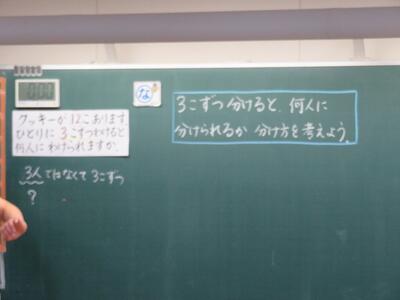 0:00
な
クッキーが12こあります
ひとりに3こずつわけると
何人にわけられますか。
3こずつ分けると、何人に
分けられるか 分け方を考えよう。
3人ではなくて3こずつ
?